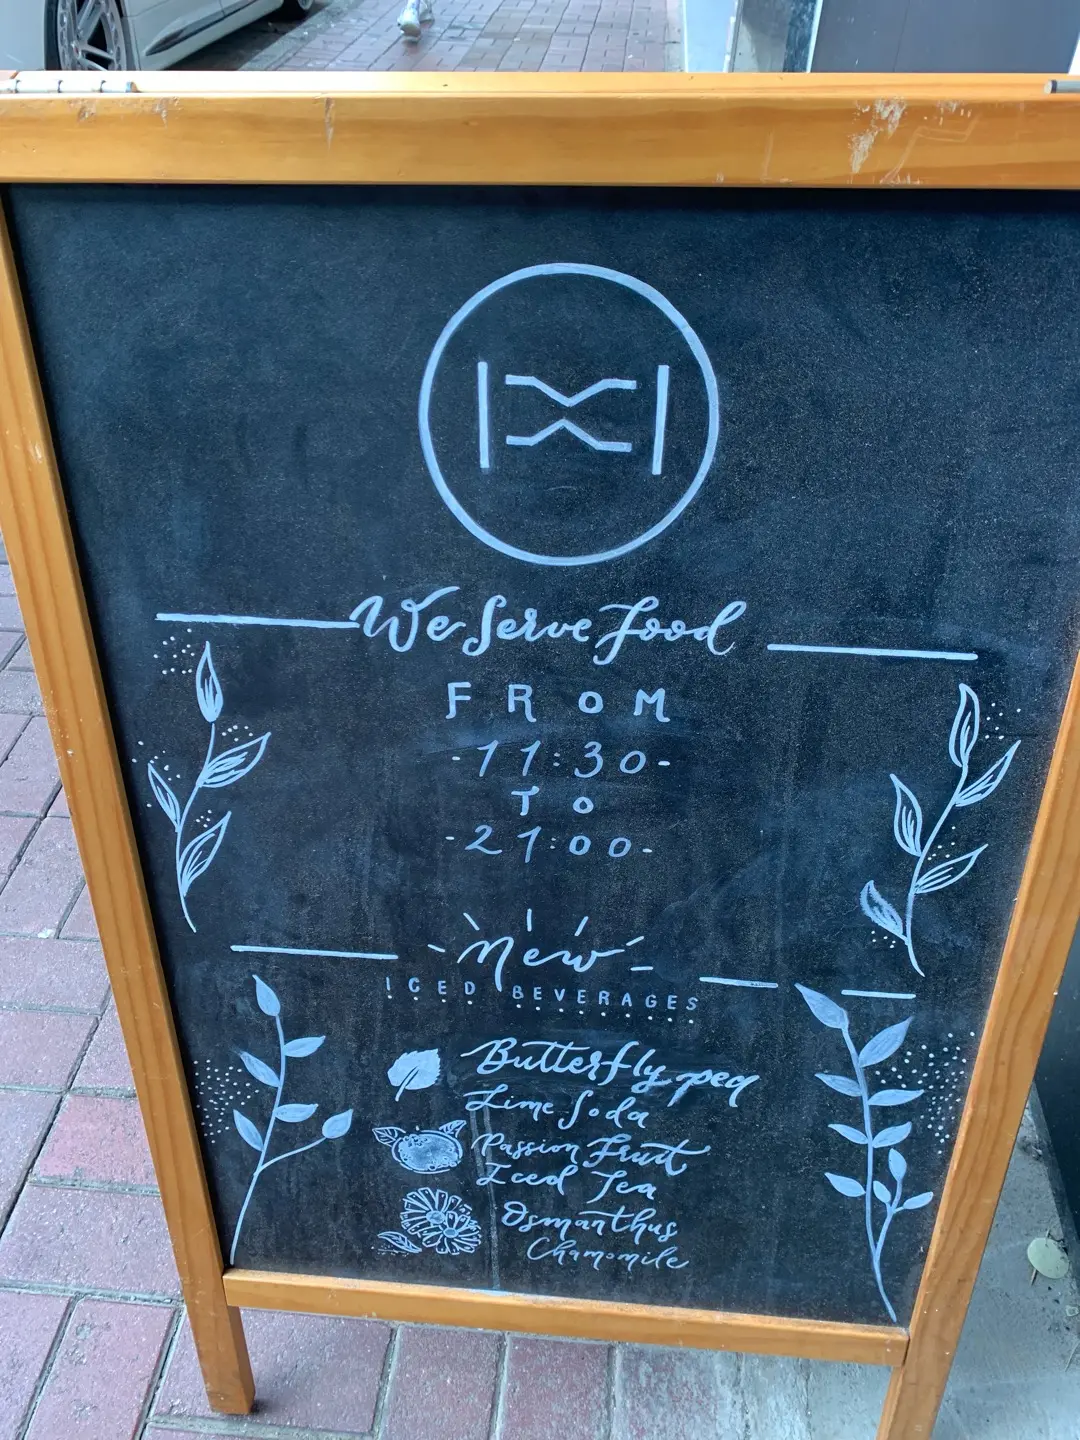 We Serve Food
FROM
-11:30-
TO
-21:00-
New
ICED BEVERAGES
Butterfly pea
Lime Soda
Passion Fruit
Iced Tea
Osmanthus
Chamomile